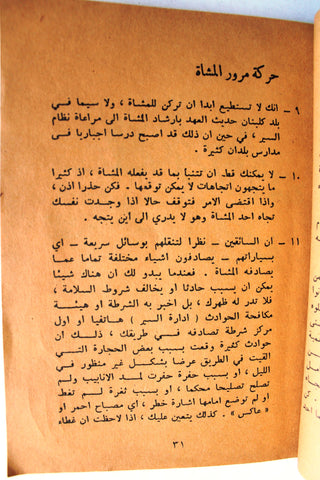 حركة مرور المشاة
٩ – انك لا تستطيع ابدا ان تركن للمشاة ، ولا سيما في
بلد كلبنان حديث العهد بارشاد المشاة الى مراعاة نظام
السير ، في حين ان ذلك قد اصبح درسا اجباريا في
مدارس بلدان كثيرة .
١٠ – لا يمكنك قط ان تتنبا بما قد يفعله المشاة ، اذ كثيرا ما
يتجهون اتجاهات لا يمكن توقعها . فكن حذرا اذن ،
واذا اقتضى الامر فتوقف حالا اذا وجدت نفسك
تجاه احد المشاة وهو لا يدري الى اين يتجه .
١١ – ان السائقين – نظرا لتنقلهم بوسائل سريعة – اي
بسياراتهم – يصادفون اشياء مختلفة تماما عما
يصادفه المشاة . فعندما يبدو لك ان هناك شيئا
يمكن ان يسبب حادثا او يخالف شروط السلامة ،
فلا تدر له ظهرك ، بل اخبر به الشرطة او هيئة
مكافحة الحوادث ( ادارة السير ) هاتفيا او اول
مركز شرطة تصادفه في طريقك ، ذلك ان
حوادث كثيرة وقعت بسبب بعض الحجارة التي
القيت في الطريق عرضا بشكل غير منظور في
الليل ، او بسبب حفرة حفرت لمد الانابيب ولم
تصلح تصليحا محكما ، او بسبب ثغرة لم تغط
او لم توضع امامها اشارة خطر ، اي مصباح احمر او
« عاكس » . كذلك يتعين عليك ، اذا لاحظت ان غطاء
٣١